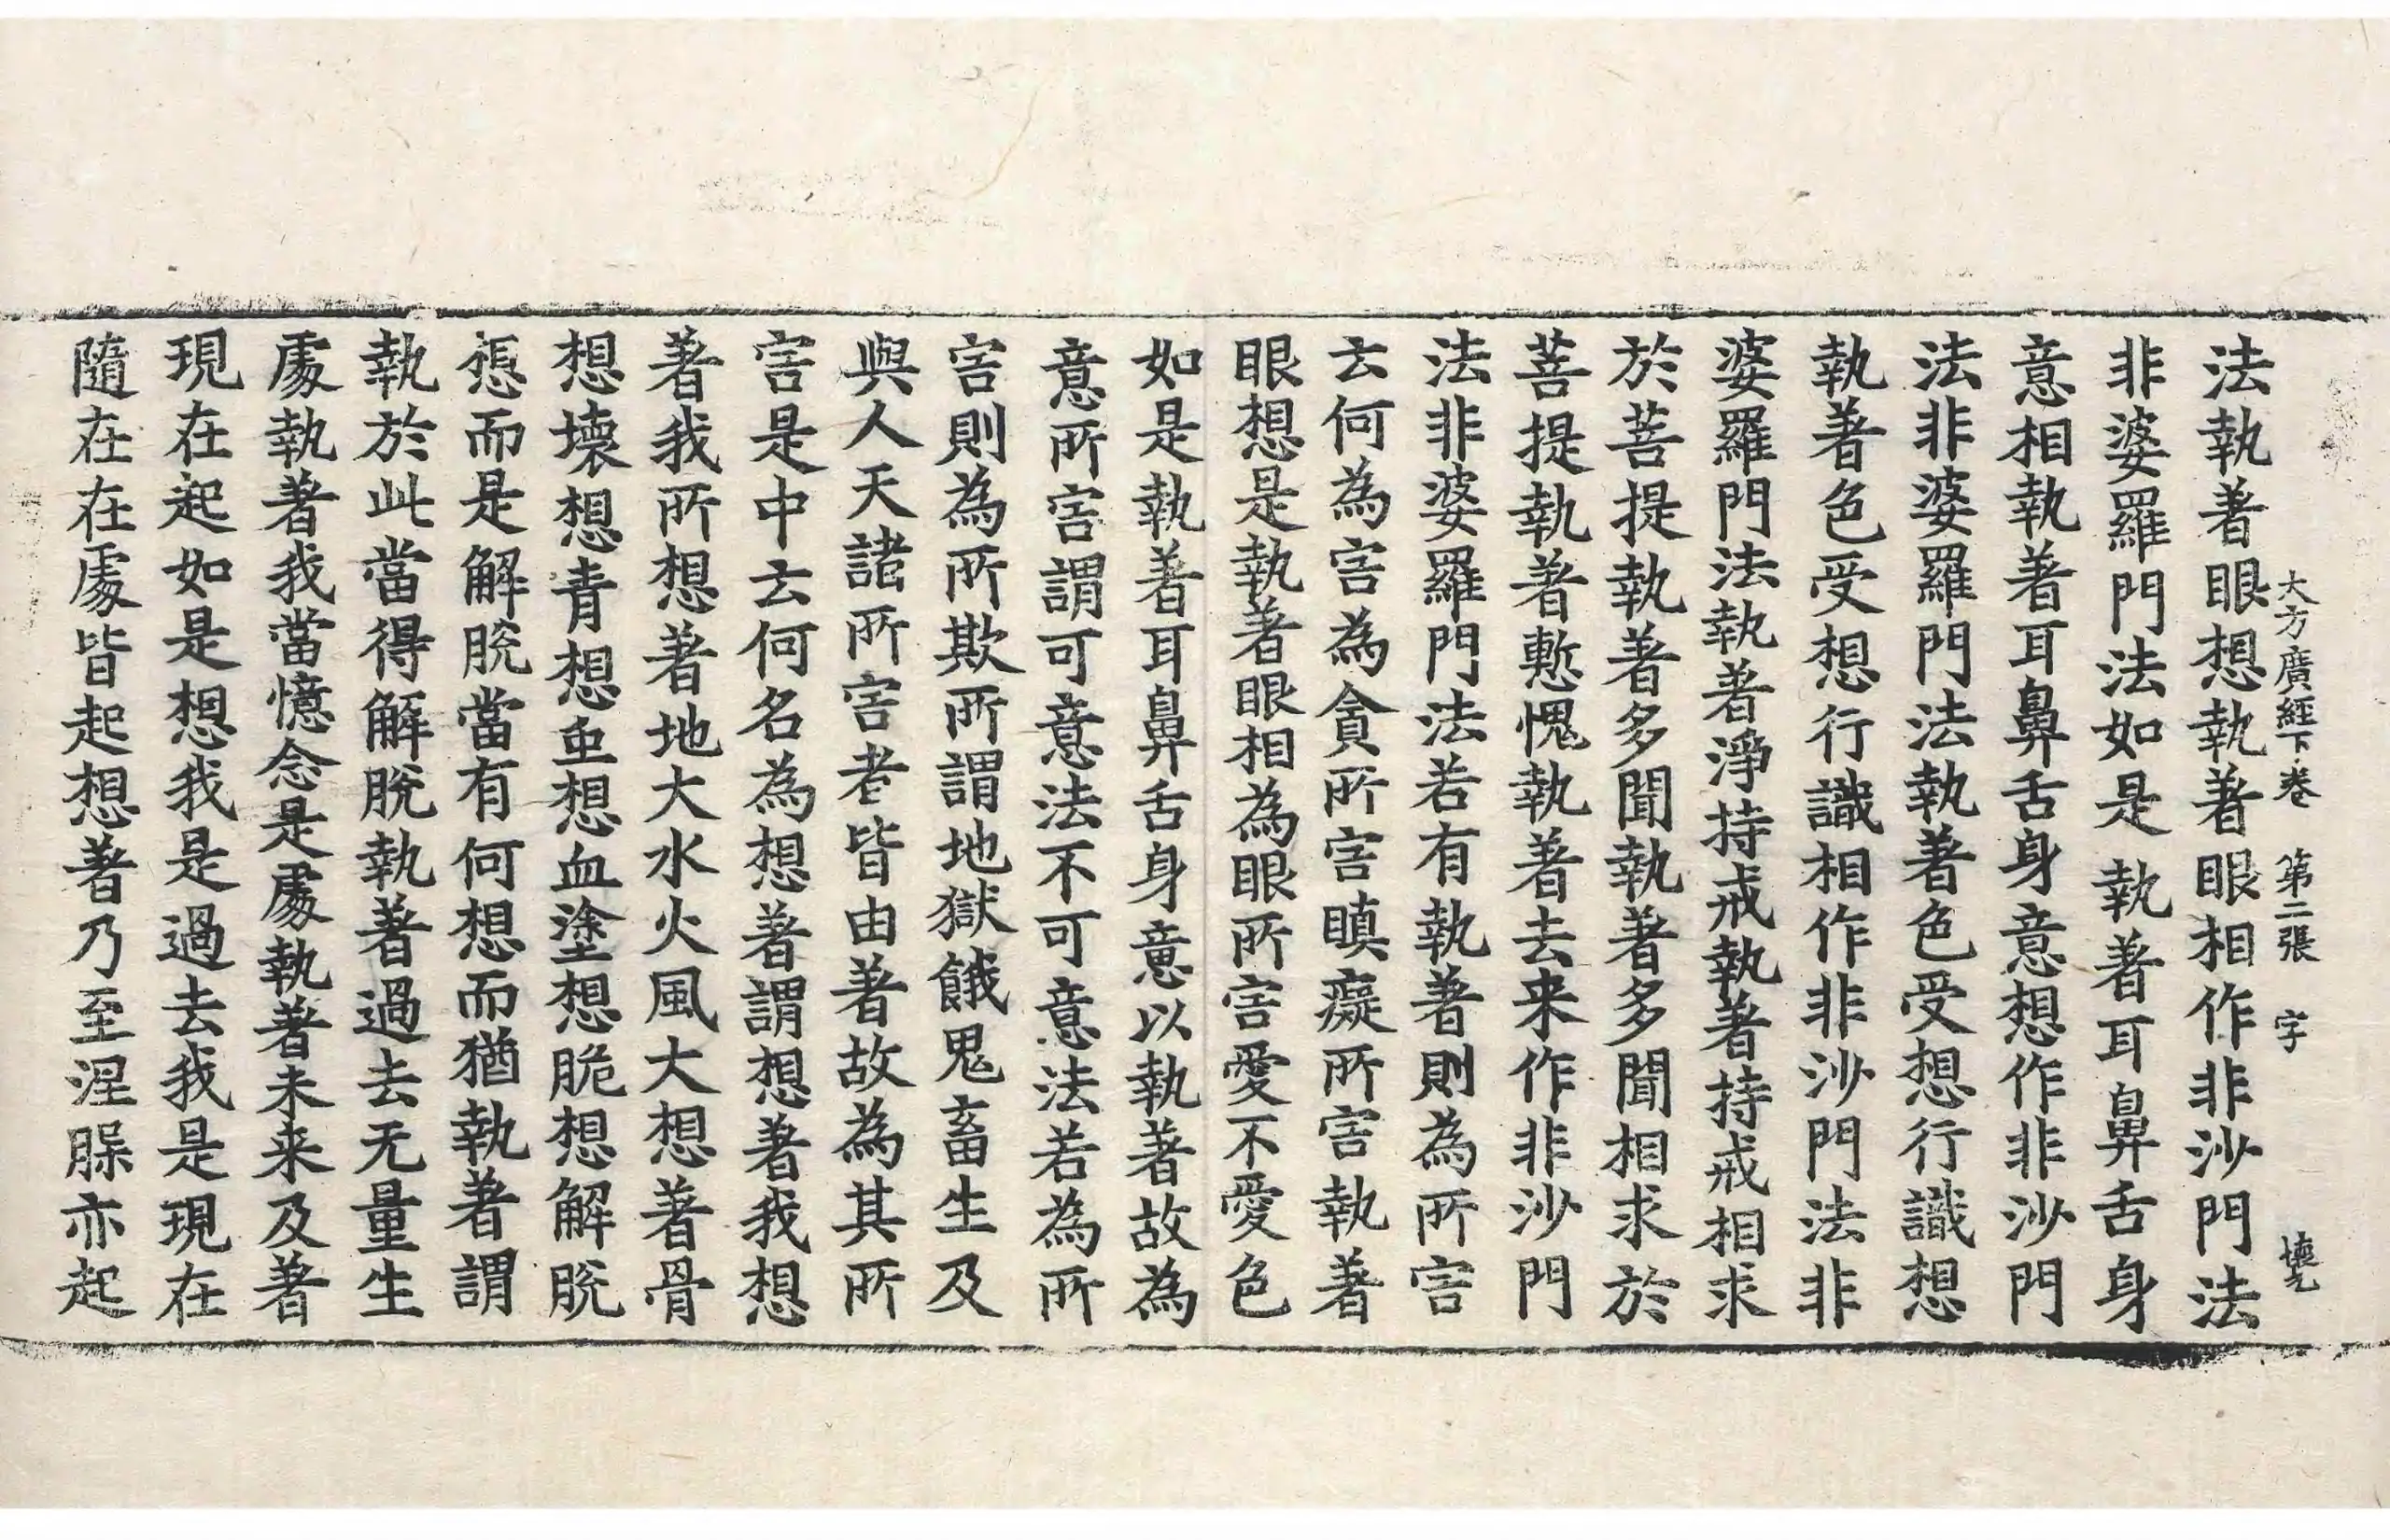 大方廣經下卷 第二張 字
法執著眼想執著眼相作非沙門法
非婆羅門法如是執著耳鼻舌身
意相執著耳鼻舌身意想作非沙門
法非婆羅門法執著色受想行識想
執著色受想行識相作非沙門法非
婆羅門法執著淨持戒執著持戒相求
於菩提執著多聞執著多聞相求於
菩提執著慙愧執著去来作非沙門
法非婆羅門法若有執著則為所害
云何為害為貪所害瞋癡所害執著
眼想是執著眼相為眼所害愛不愛色
如是執著耳鼻舌身意以執著故為
意所害謂可意法不可意法若為所
害則為所欺所謂地獄餓鬼畜生及
與人天諸所害者皆由著故為其所
害是中云何名為想著謂想著我想
著我所想著地大水火風大想著骨
想壞想青想虫想血塗想脆想解脫
想而是解脫當有何想而猶執著謂
執於此當得解脫執著過去无量生
處執著我當憶念是處執著未来及著
現在起如是想我是過去我是現在
隨在在處皆起想著乃至涅槃亦起